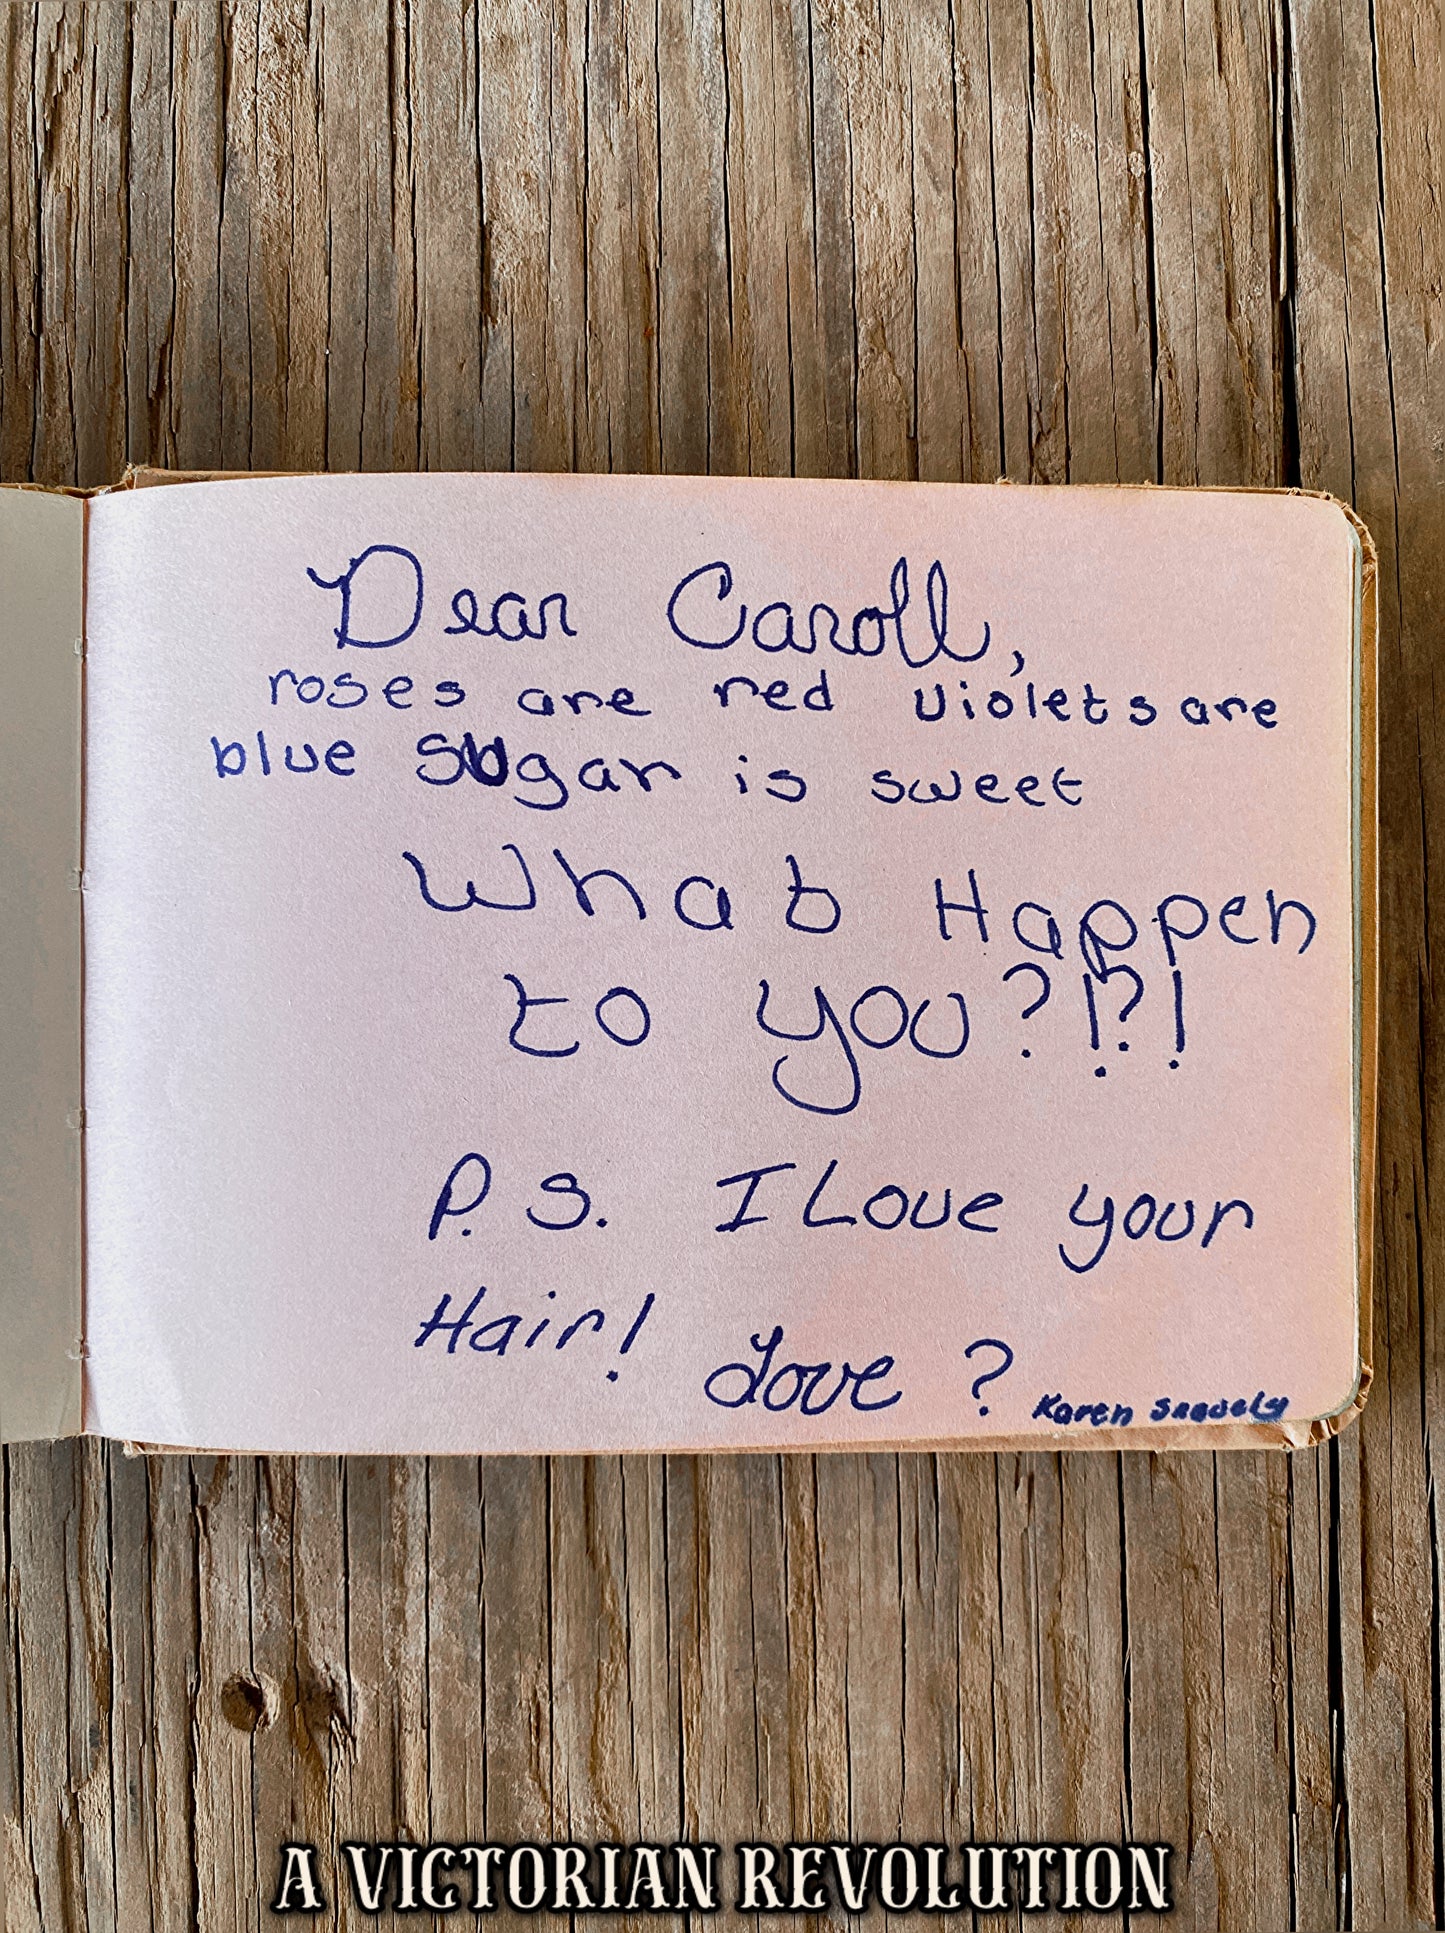 Dear Caroll,
roses are red violets are
blue Sugar is sweet
What Happen
to you?!?!
P.S. I Love your
Hair!
Love ? Karen Snavely
A VICTORIAN REVOLUTION